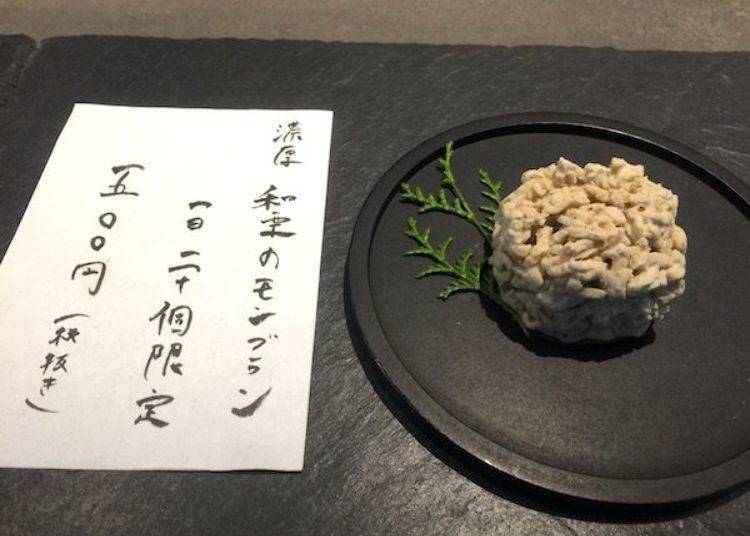 濃厚 和栗のモンブラン
一日 二十個限定
一五〇〇円
(税抜き)